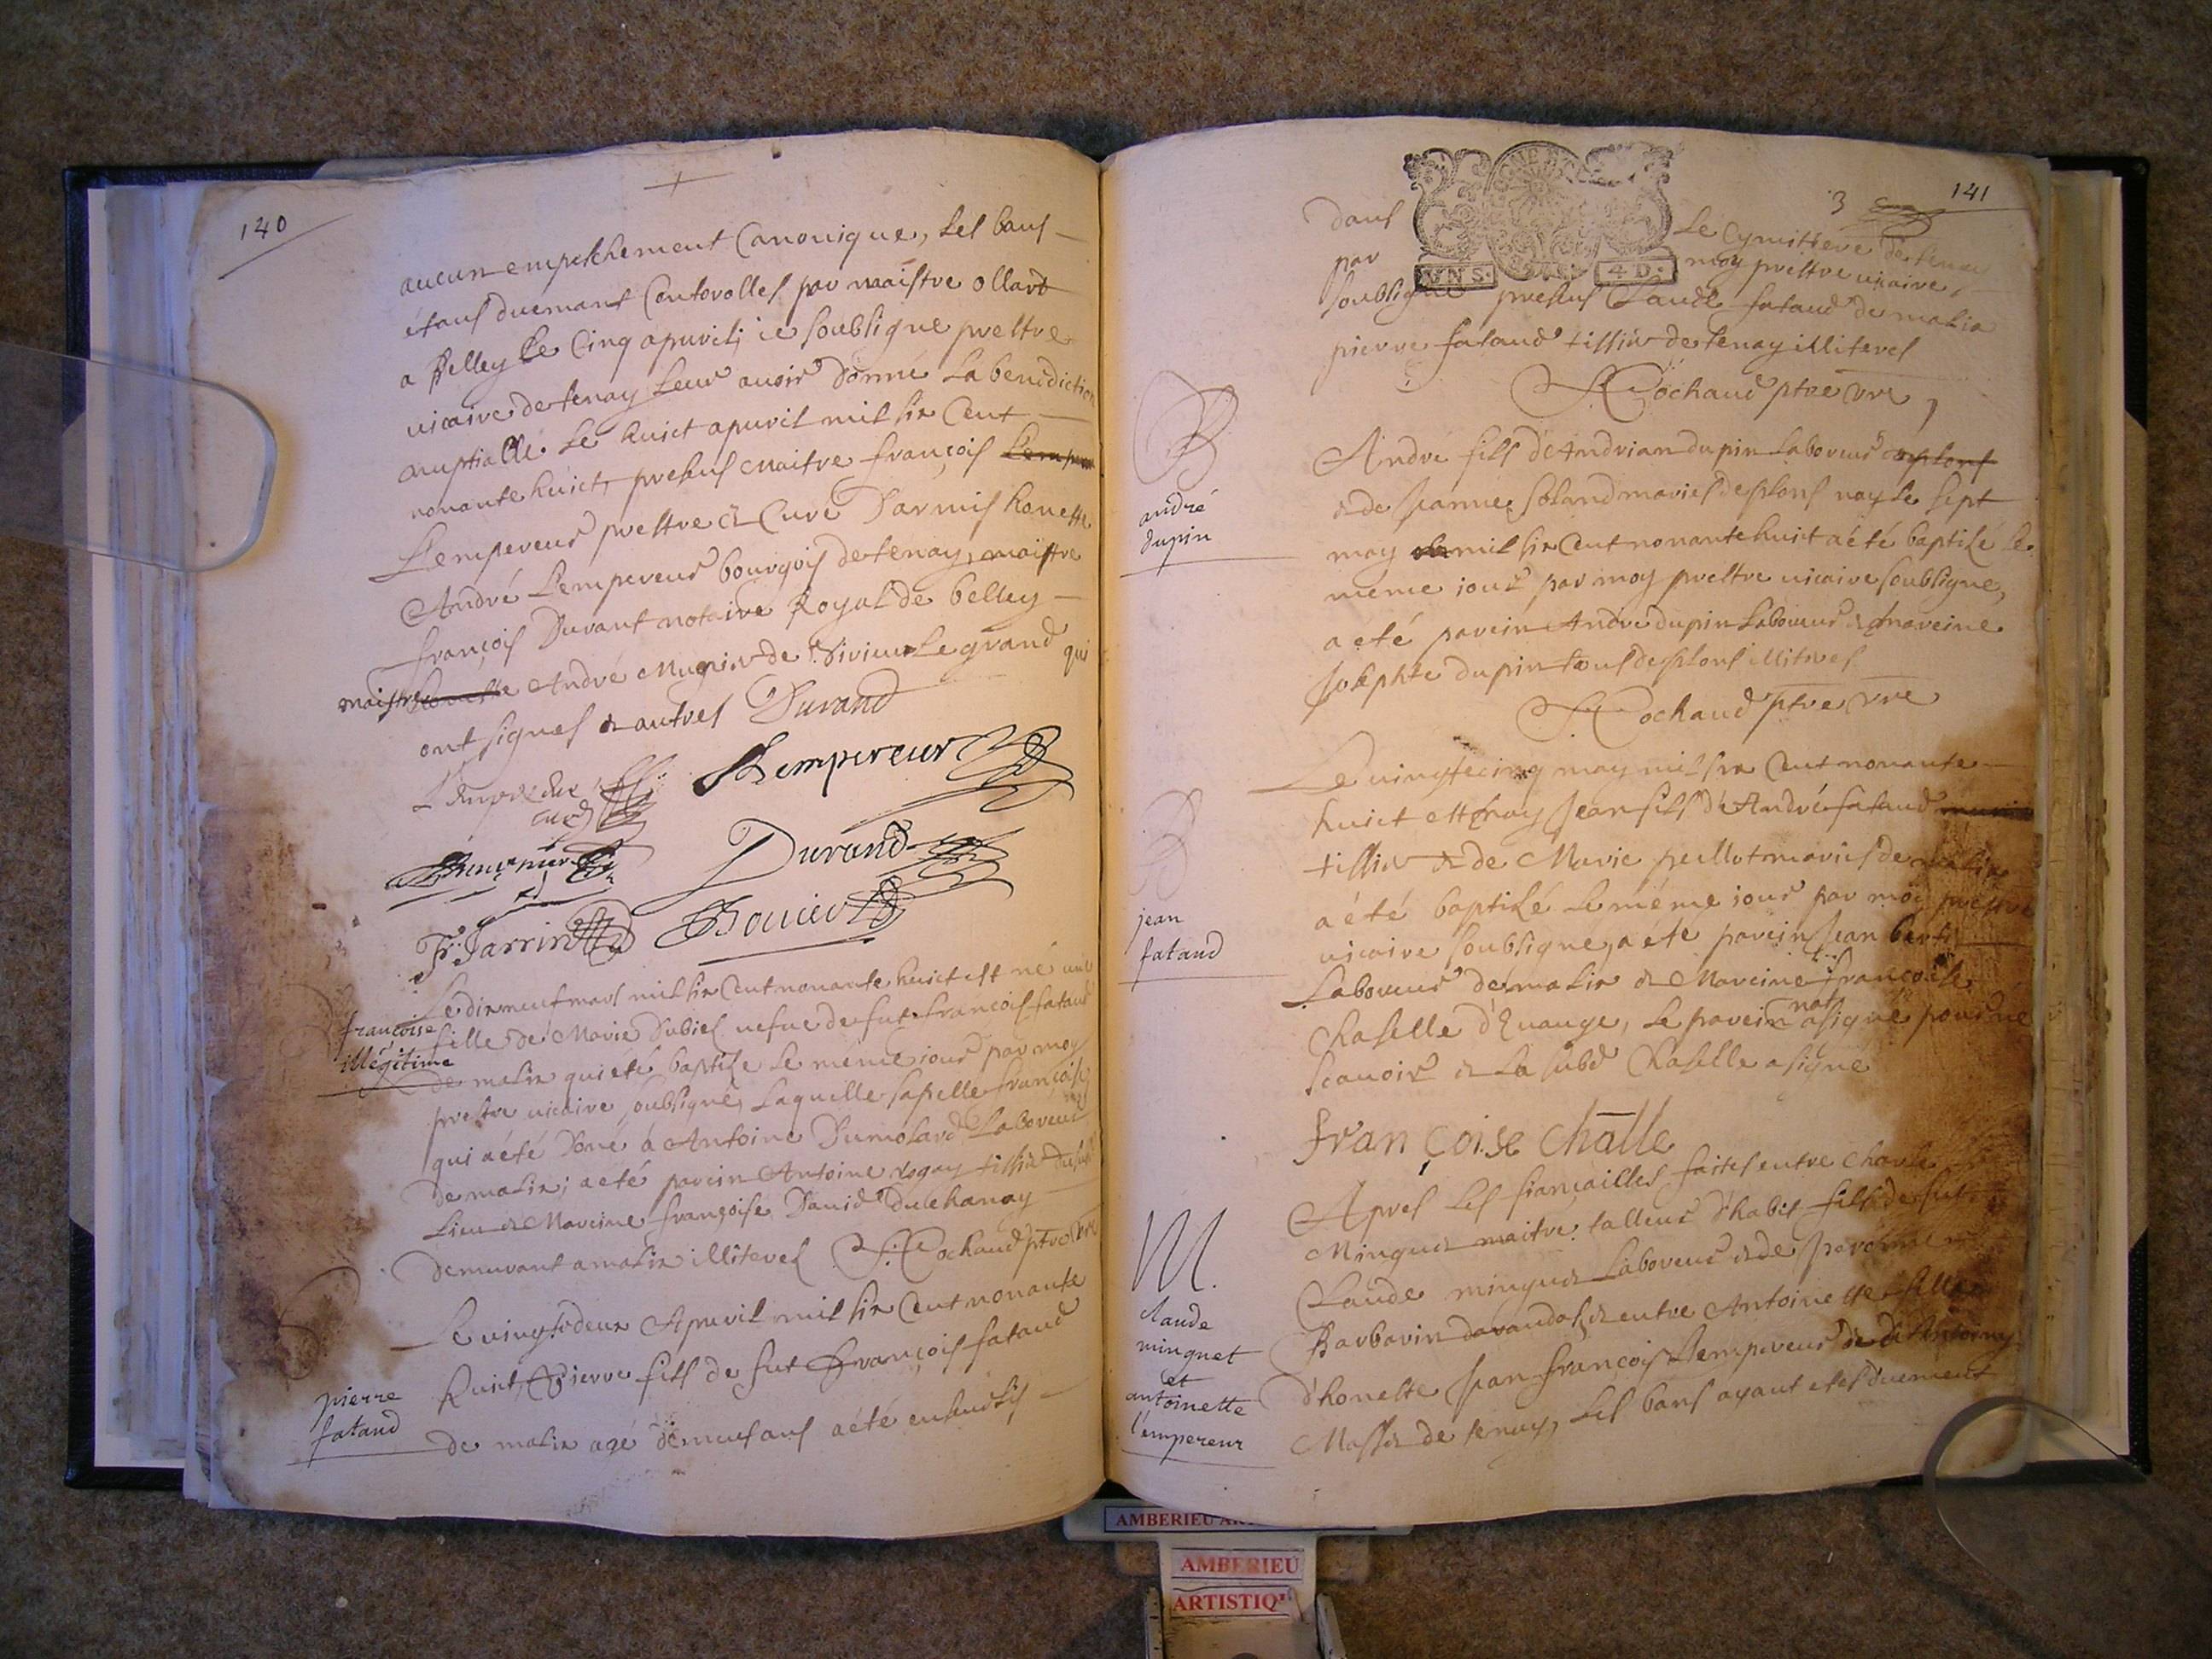 140
aucun empeschement Canonique, les bans
étans duemant Controlles par maistre ollard
a Belley le Cinq apuril, ie soubsigne prestre
uicaire de tenay leur auoir donné la benediction
nuptialle le huict apuril mil six Cent
nonante huict, presens maitre françois
Lempereur prestre & Curé Darmis honeste
André Lempereur bourgois de tenay, maistre
françois Durant notaire Royal de belley
maistre André Mugnier de Virieu le grand qui
ont signes & autres Durand
Lempereur
curé
Lempereur
Durand
Fr. Jarrin
Bouuier
françoise
illégitime
Le dixneuf mars mil six Cent nonante huict est né une
fille de Marie Dubiez uefue de fut francois fataud
de malix qui été baptize le meme iour par moy
prestre uicaire soubsigné, laquelle sapelle françoise
qui a été doné a Antoine Dumolard Laboreur
de malix; a été parein Antoine Rogay tissier
lieu & Mareine françoise Dauid du chanay
demurant a malix illiteres F. Cochaud ptre vre
pierre
fataud
Le vingtedeux Apuril mil six Cent nonante
huict, Pierre fils de fut François fataud
de malix agé de neuf ans a été enseuelis
3
141
dans le Cymittere de tenay
par moy prestre uicaire
VNS. 4 D.
soubligne presens Claude fataud de malix
pierre fataud tissier de tenay illiteres
F. Cochaud ptre vre
B
andré
dupin
André fils d'Andrian dupin laboreur
& de Jeanne Soland maries de plons nay le sept
may mil six Cent nonante huit a été baptisé le
meme iour par moy prestre uicaire soubsigne,
a eté parein André dupin laboreur & mareine
Josephte dupin tous de plons illiteres
F. Cochaud ptre vre
B
jean
fataud
Le uingtecinq may mil six Cent nonante
huict est nay Jean fils d'André fataud
tissier & de Marie peillot maries de malix
a été baptizé le méme iour par moy prestre
uicaire soubsigne, a éte parein Jean
Laboreur de malix & Mareine françoise
Chaselle d'Euange, le parein na signé pour ne
scauoir & la subd Chaselle a signe
françoise challe
M.
claude
minguet
et
antoinette
l'empereur
Apres les fiançailles faites entre Charle
Minguet maitre talleur d'habit fils de fut
Claude minguet Laboreur & de
Barbarin & entre Antoinette fille
d'honeste Jean françois Lempereur & d'
Masset de tenay, les bans ayant etes duement
AMBERIEU
AMBERIEU
ARTISTIQ